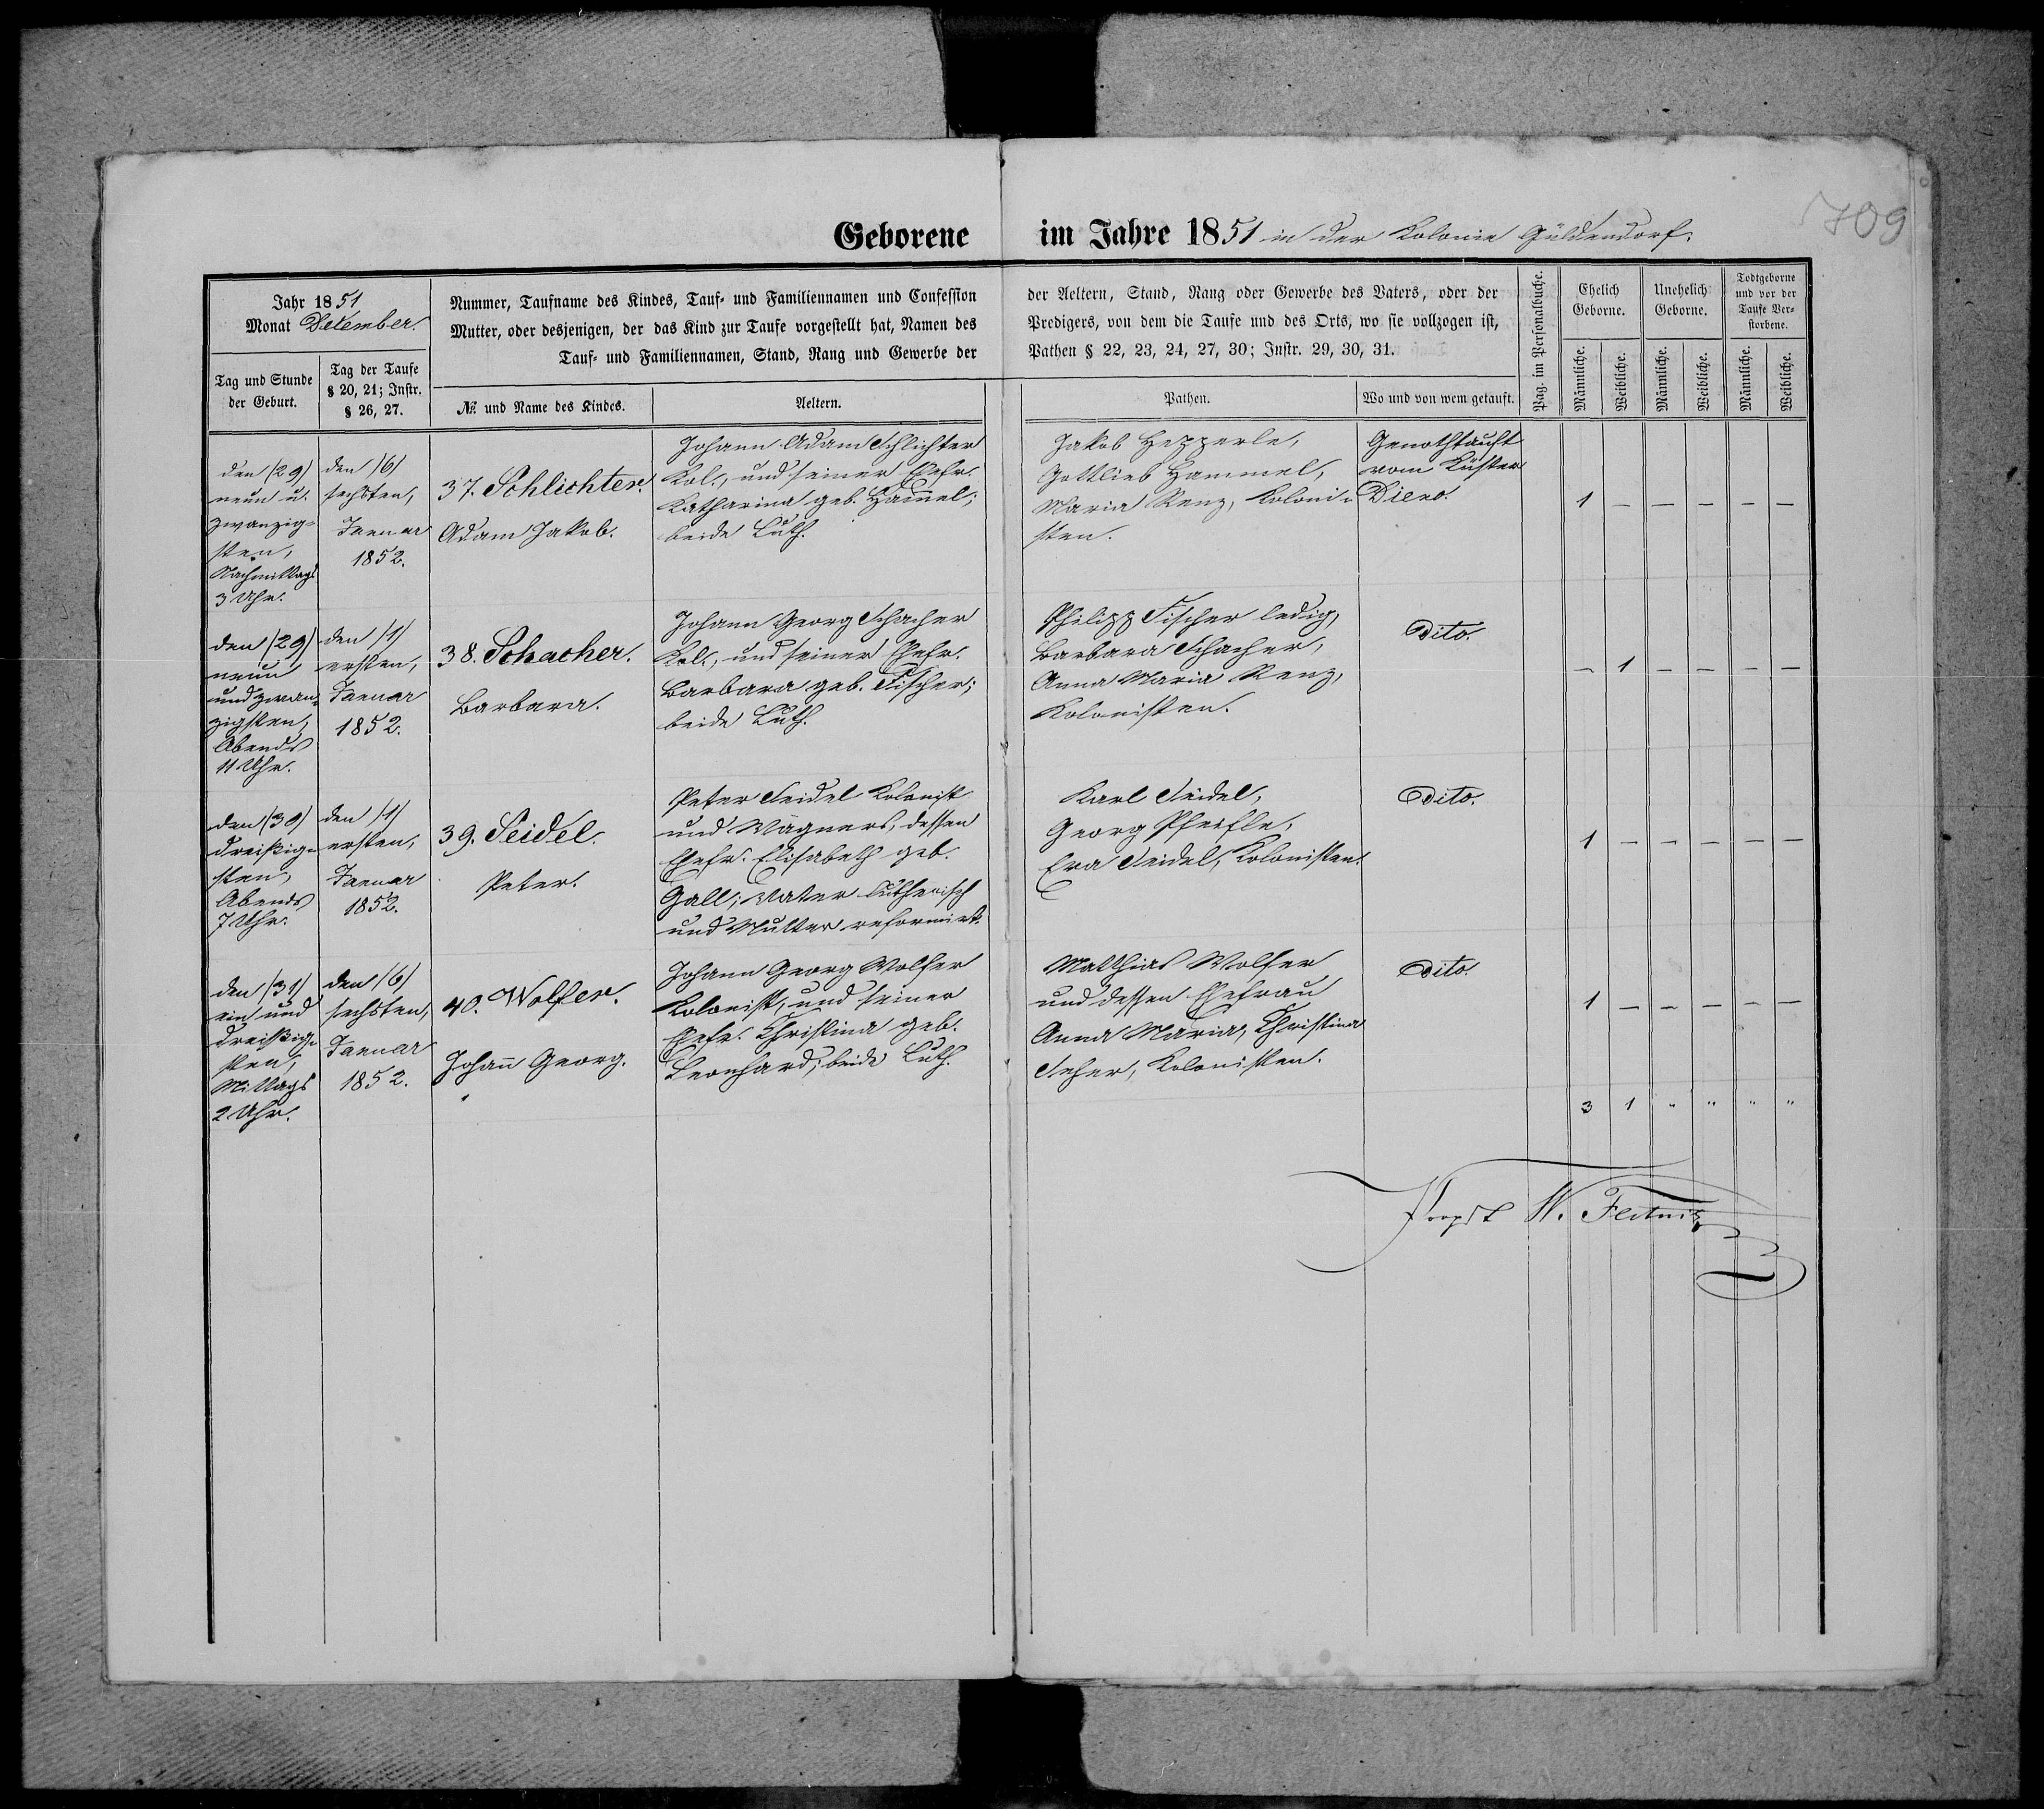 709
Geborene im Jahre 1851 in der Kolonie Güldendorf.
Jahr 1851
Monat Dezember.
Nummer, Taufname des Kindes, Tauf- und Familiennamen und Confession der Aeltern, Stand, Rang oder Gewerbe des Vaters, oder der
Mutter, oder desjenigen, der das Kind zur Taufe vorgestellt hat, Namen des Predigers, von dem die Taufe und des Orts, wo sie vollzogen ist,
Tauf- und Familiennamen, Stand, Rang und Gewerbe der Pathen § 22, 23, 24, 27, 30; Instr. 29, 30, 31.
Pag. im Personalbuche.
Ehelich
Geborne.
Unehelich
Geborne.
Todtgeborne
und vor der
Taufe Ver-
storbene.
Tag und Stunde
der Geburt.
Tag der Taufe
§ 20, 21; Instr.
§ 26, 27.
№ und Name des Kindes.
Aeltern.
Pathen.
Wo und von wem getauft.
Männliche.
Weibliche.
Männliche.
Weibliche.
Männliche.
Weibliche.
den (29)
neun u.
zwanzig-
sten,
Nachmittags
3 Uhr.
den (6)
sechsten,
Januar
1852.
37. Schlichter.
Adam Jakob.
Johann Adam Schlichter
Kol., und seiner Ehefr.
Katharina geb. Ham̄el;
beide Luth.
Jakob Hepperle,
Gottlieb Hammel,
Maria Renz, Koloni-
sten.
Genothtauft
vom Küster
1 — — — — —
den (29)
neun
und zwan-
zigsten,
Abends
11 Uhr.
den (1)
ersten,
Januar
1852.
38. Schacher.
Barbara.
Johann Georg Schacher
Kol., und seiner Ehefr.
Barbara geb. Fischer;
beide Luth.
Philipp Fischer ledig,
Barbara Schacher,
Anna Maria Renz,
Kolonisten.
Dito.
— 1 — — — —
den (30)
dreißig-
sten,
Abends
7 Uhr.
den (1)
ersten,
Januar
1852.
39. Seidel.
Peter.
Peter Seidel Kolonist
und Wagners, dessen
Ehefr. Elisabeth geb.
Gall; Vater lutherisch
und Mutter reformirt.
Karl Seidel,
Georg Pfeifle,
Eva Seidel, Kolonisten.
Dito.
1 — — — — —
den (31)
ein und
dreißig-
sten,
Mittags
2 Uhr.
den (6)
sechsten,
Januar
1852.
40. Wolfer.
Johan̄ Georg.
Johann Georg Wolfer
Kolonist, und seiner
Ehefr. Christina geb.
Leonhard; beide Luth.
Matthias Wolfer
und dessen Ehefrau
Anna Maria, Christina
Kolonisten.
Dito.
1 — — — — —
3 1 " " " "
Propst W.